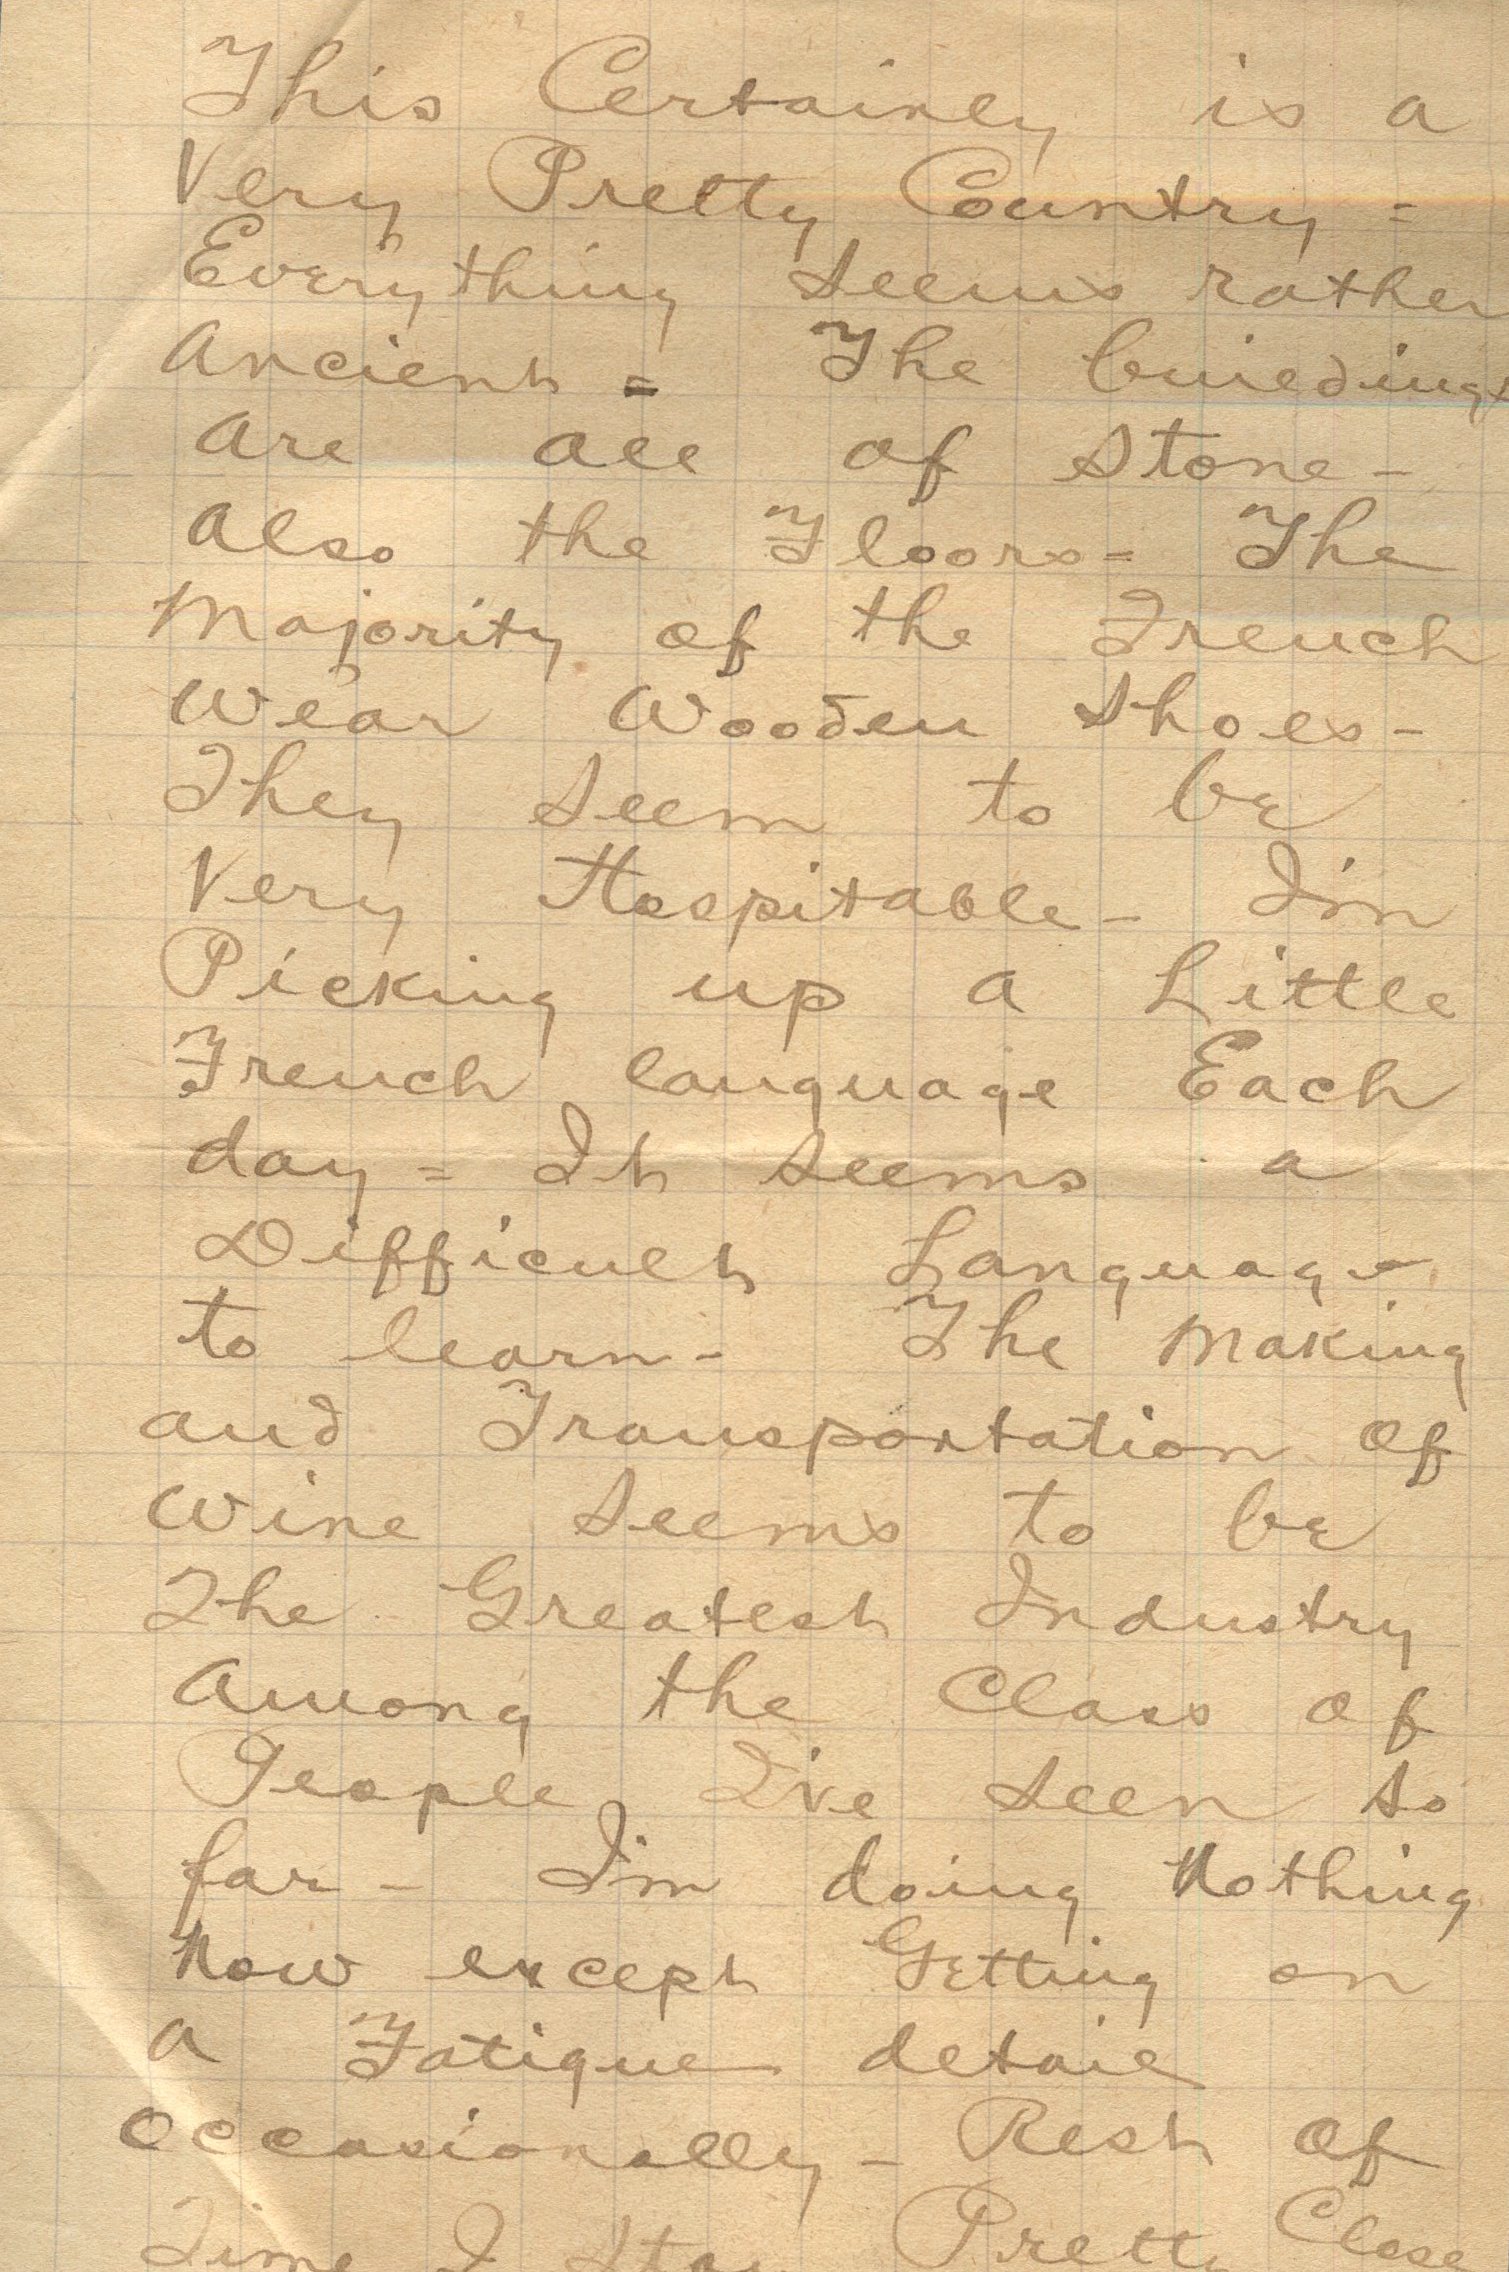 This Certainly is a
Very Pretty Country =
Everything Seems rather
Ancient = The buildings
Are all of Stone -
Also the Floors = The
Majority of the French
Wear Wooden Shoes -
They Seem to be
Very Hospitable - I'm
Picking up a Little
French language Each
day = It Seems a
Difficult Language
to learn - The Making
and Transportation of
Wine Seems to be
The Greatest Industry
Among the Class of
People I've Seen So
far - I'm doing Nothing
Now except Getting on
a Fatigue detail
Occasionally - Rest of
Time I Stay Pretty Close